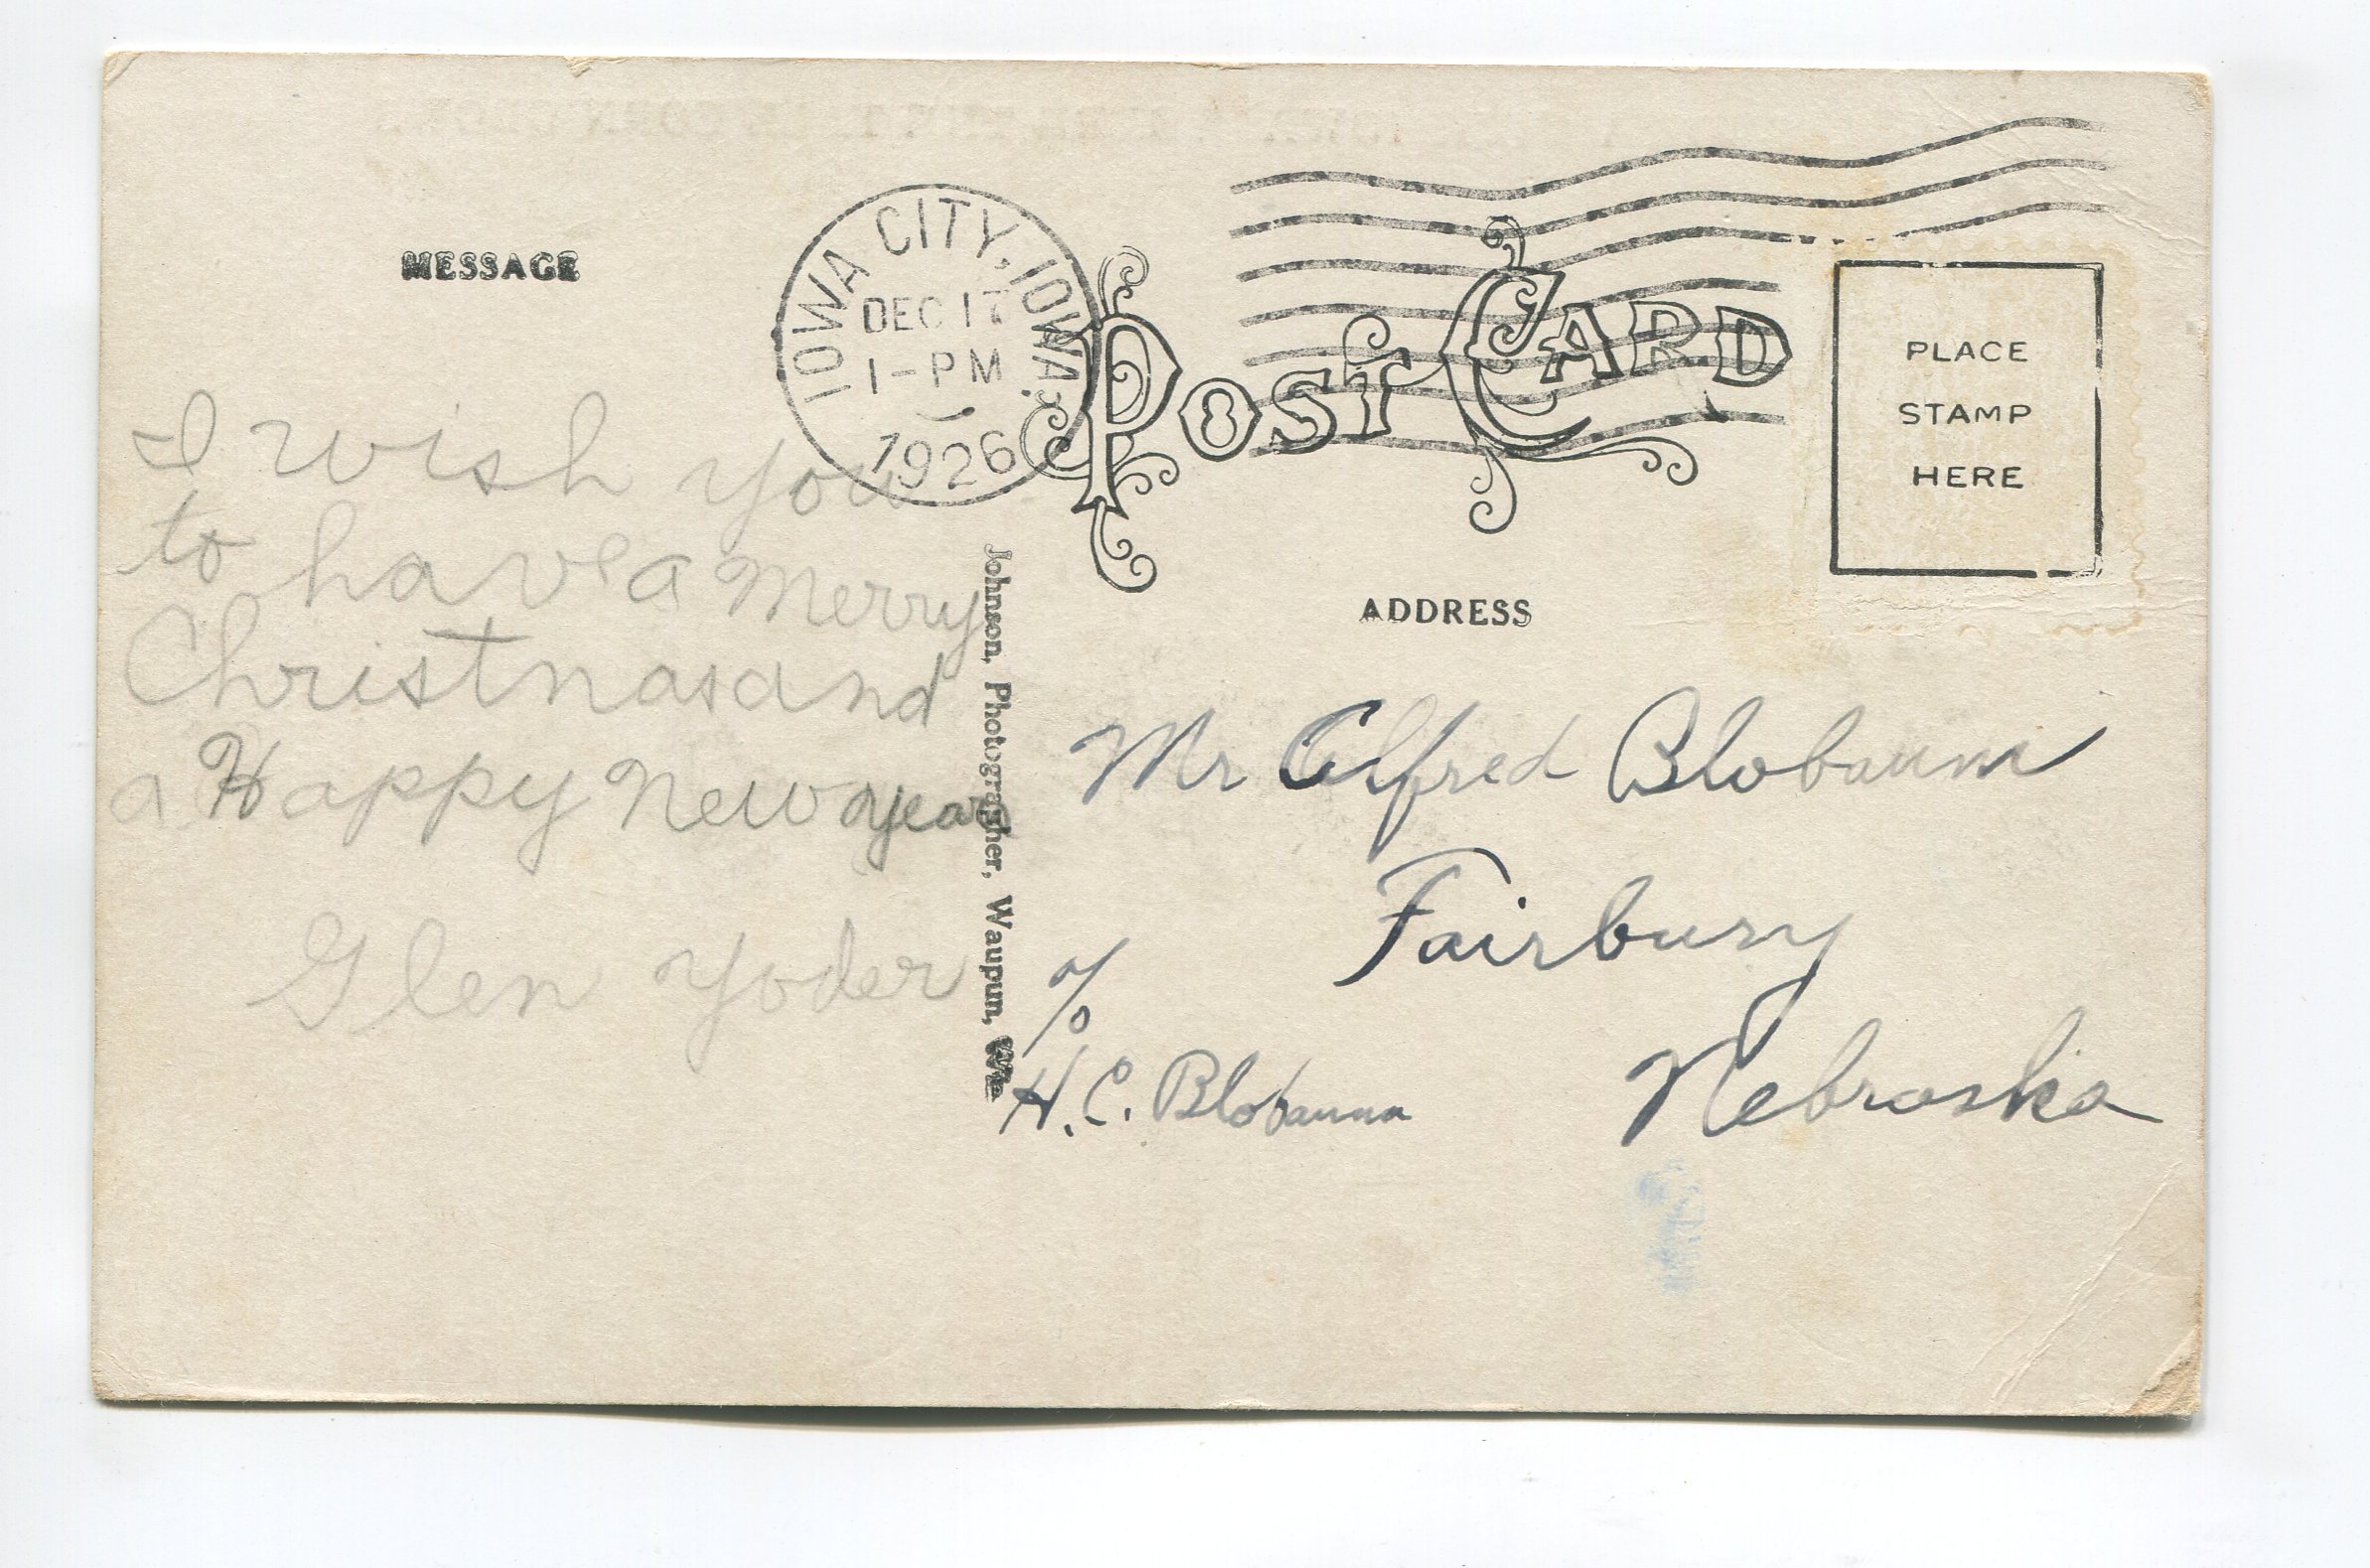 MESSAGE
IOWA CITY, IOWA.
DEC 17
1-PM
1926
POST CARD
PLACE
STAMP
HERE
I wish you
to have a Merry
Christnas and
a Happy New year
Glen Yoder
Johnson, Photographer, Waupun, Wis
ADDRESS
Mr Alfred Blobaum
Fairbury
Nebraska
c/o
H. C. Blobaum